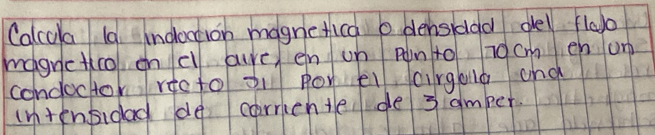 Calcula la inducción magnetica o densidad del flujo
magnetico en el aire, en un punto 70cm en un
conductor recto si por el cirgula una
intensidad de corriente de 3 amper.